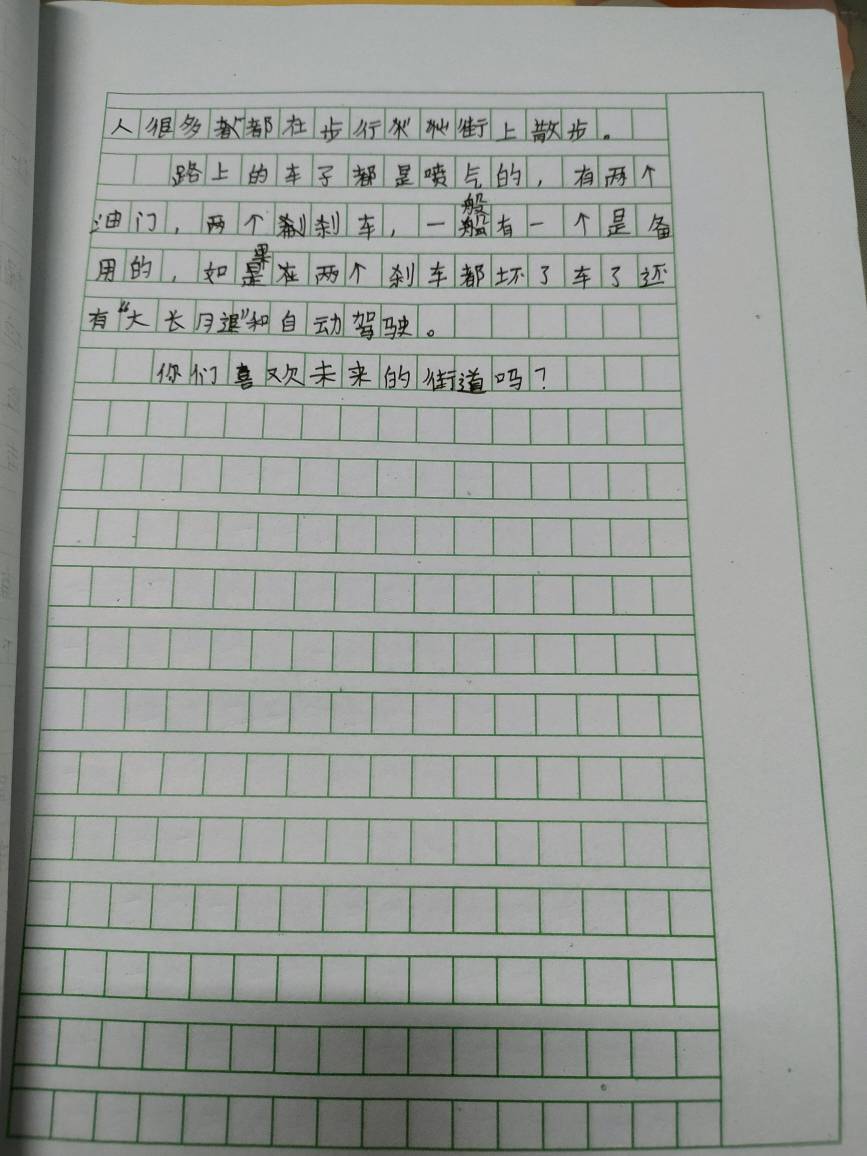 人很多都在步行街上散步。
路上的车子都是喷气的，有两个
油门，两个刹车，一般有一个是备
用的，如果在两个刹车都坏了车了还
有“大长月退”和自动驾驶。
你们喜欢未来的街道吗？